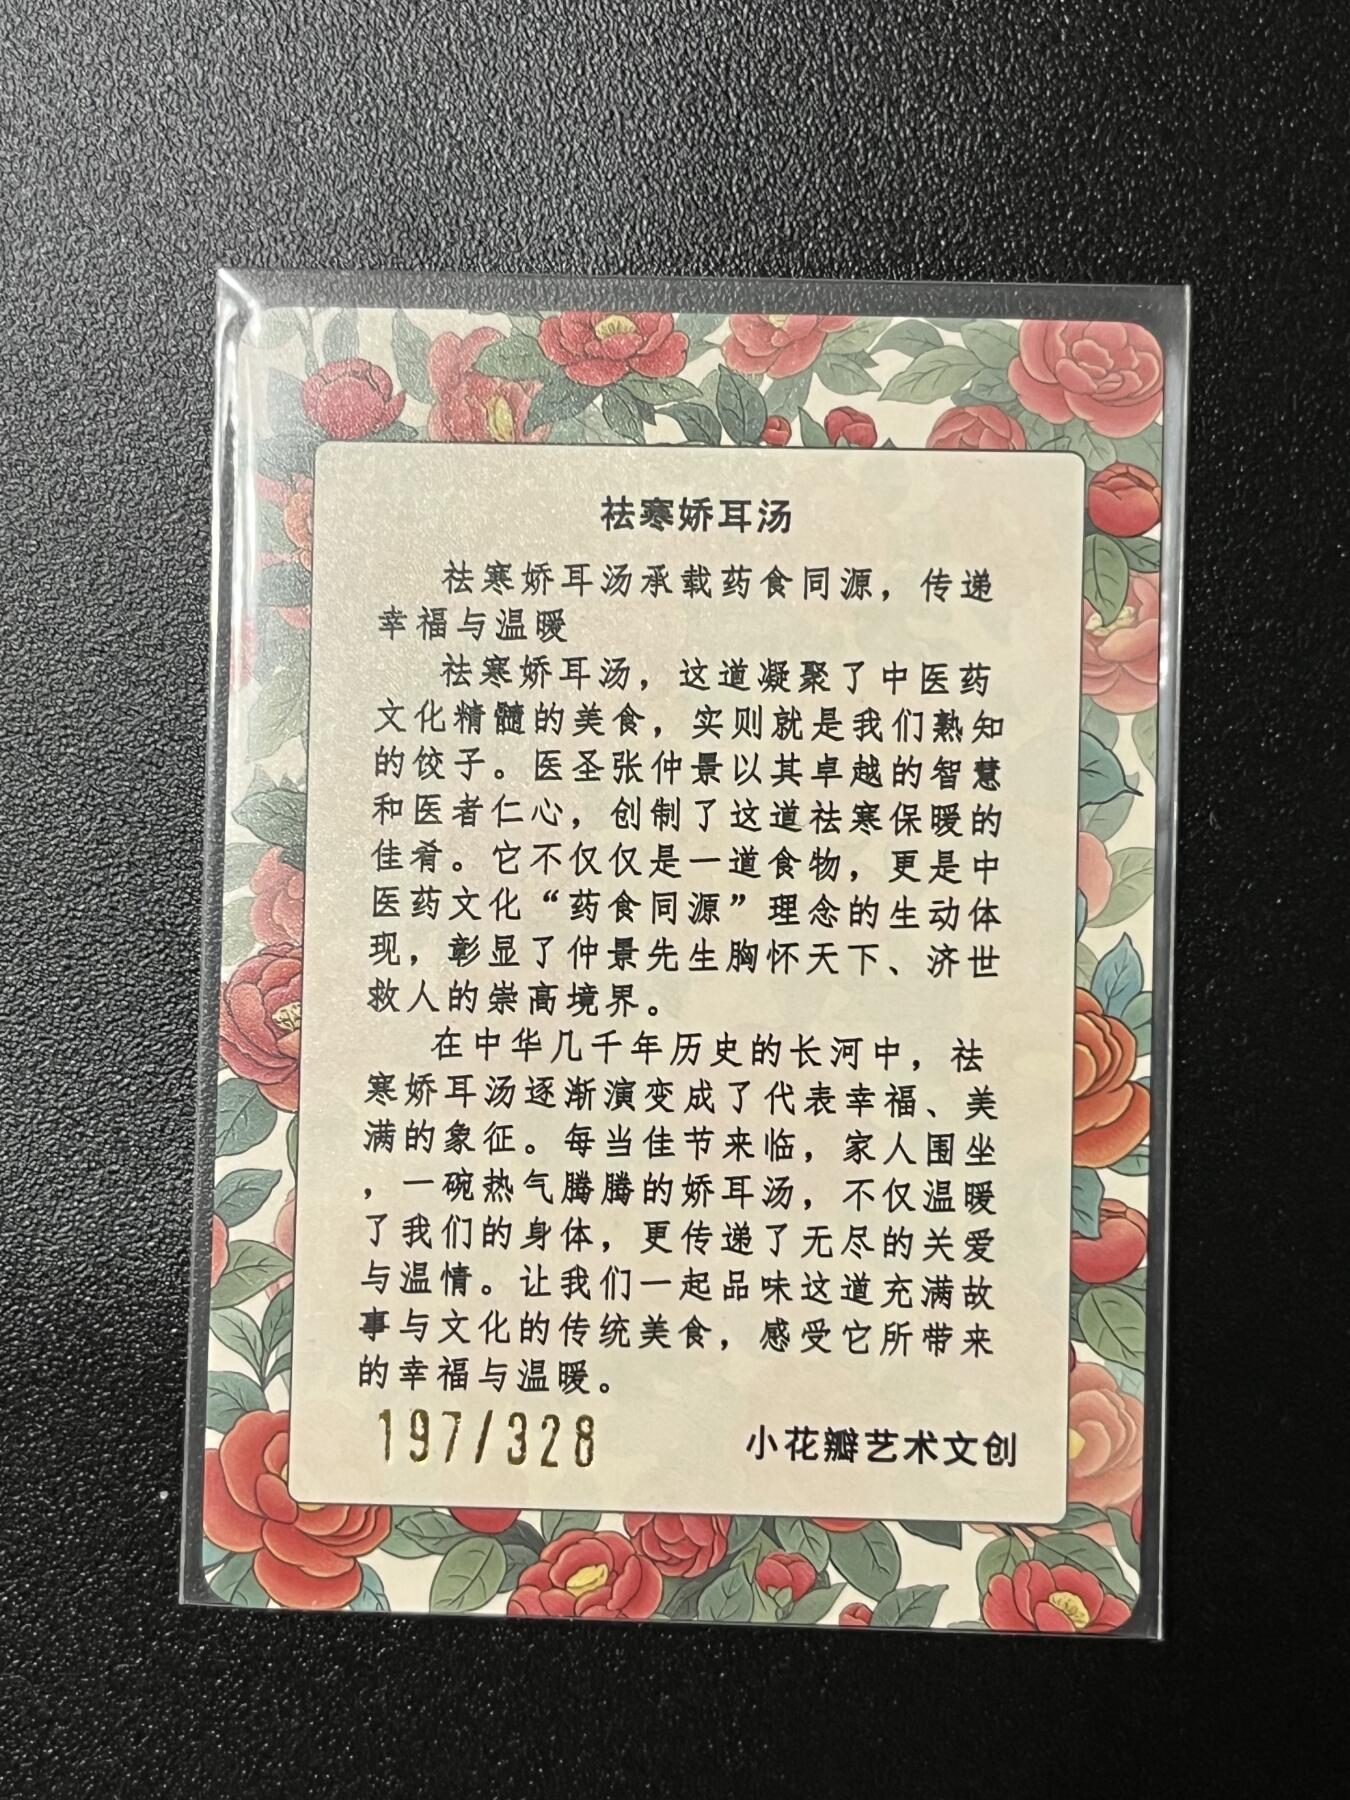 祛寒娇耳汤
祛寒娇耳汤承载药食同源，传递
幸福与温暖
祛寒娇耳汤，这道凝聚了中医药
文化精髓的美食，实则就是我们熟知
的饺子。医圣张仲景以其卓越的智慧
和医者仁心，创制了这道祛寒保暖的
佳肴。它不仅仅是一道食物，更是中
医药文化“药食同源”理念的生动体
现，彰显了仲景先生胸怀天下、济世
救人的崇高境界。
在中华几千年历史的长河中，祛
寒娇耳汤逐渐演变成了代表幸福、美
满的象征。每当佳节来临，家人围坐
，一碗热气腾腾的娇耳汤，不仅温暖
了我们的身体，更传递了无尽的关爱
与温情。让我们一起品味这道充满故
事与文化的传统美食，感受它所带来
的幸福与温暖。
197/328
小花瓣艺术文创